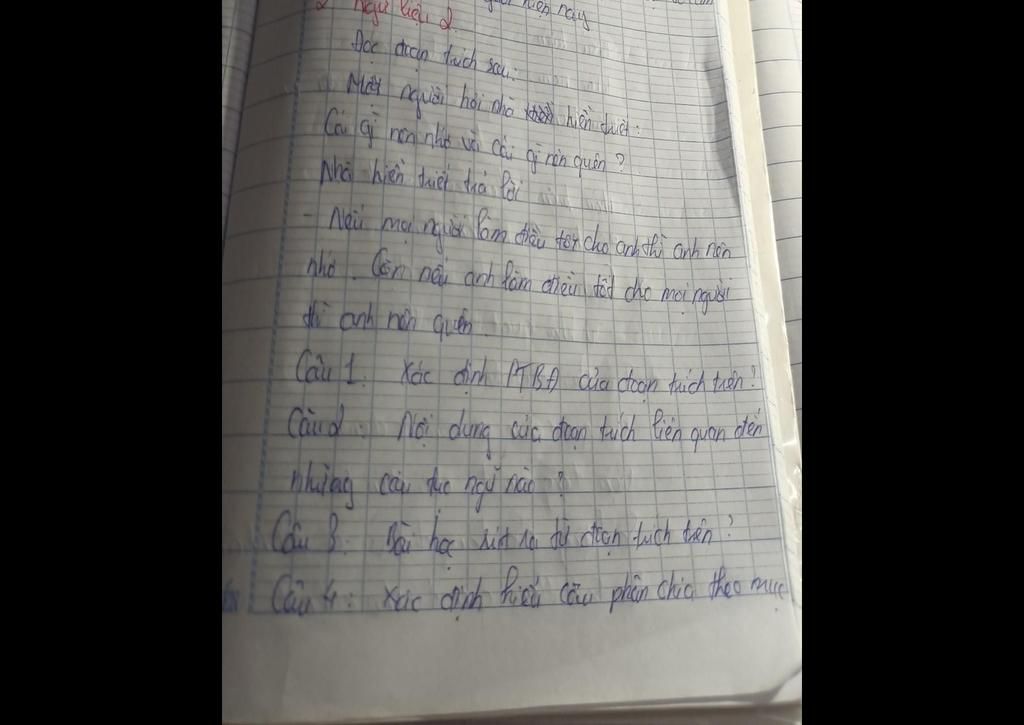 2 Ngữ liệu 2
hiện nay
Đọc đoạn trích sau:
Một người hỏi nhà hiền triết:
Cái gì nên nhớ và cái gì nên quên?
Nhà hiền triết trả lời
- Nếu mọi người làm điều tốt cho anh thì anh nên
nhớ. Còn nếu anh làm điều tốt cho mọi người
thì anh nên quên
Câu 1: Xác định PTBĐ của đoạn trích trên?
Câu 2: Nội dung của đoạn trích liên quan đến
những câu tục ngữ nào?
Câu 3: Bài học rút ra từ đoạn trích trên?
Câu 4: Xác định kiểu câu phân chia theo mục